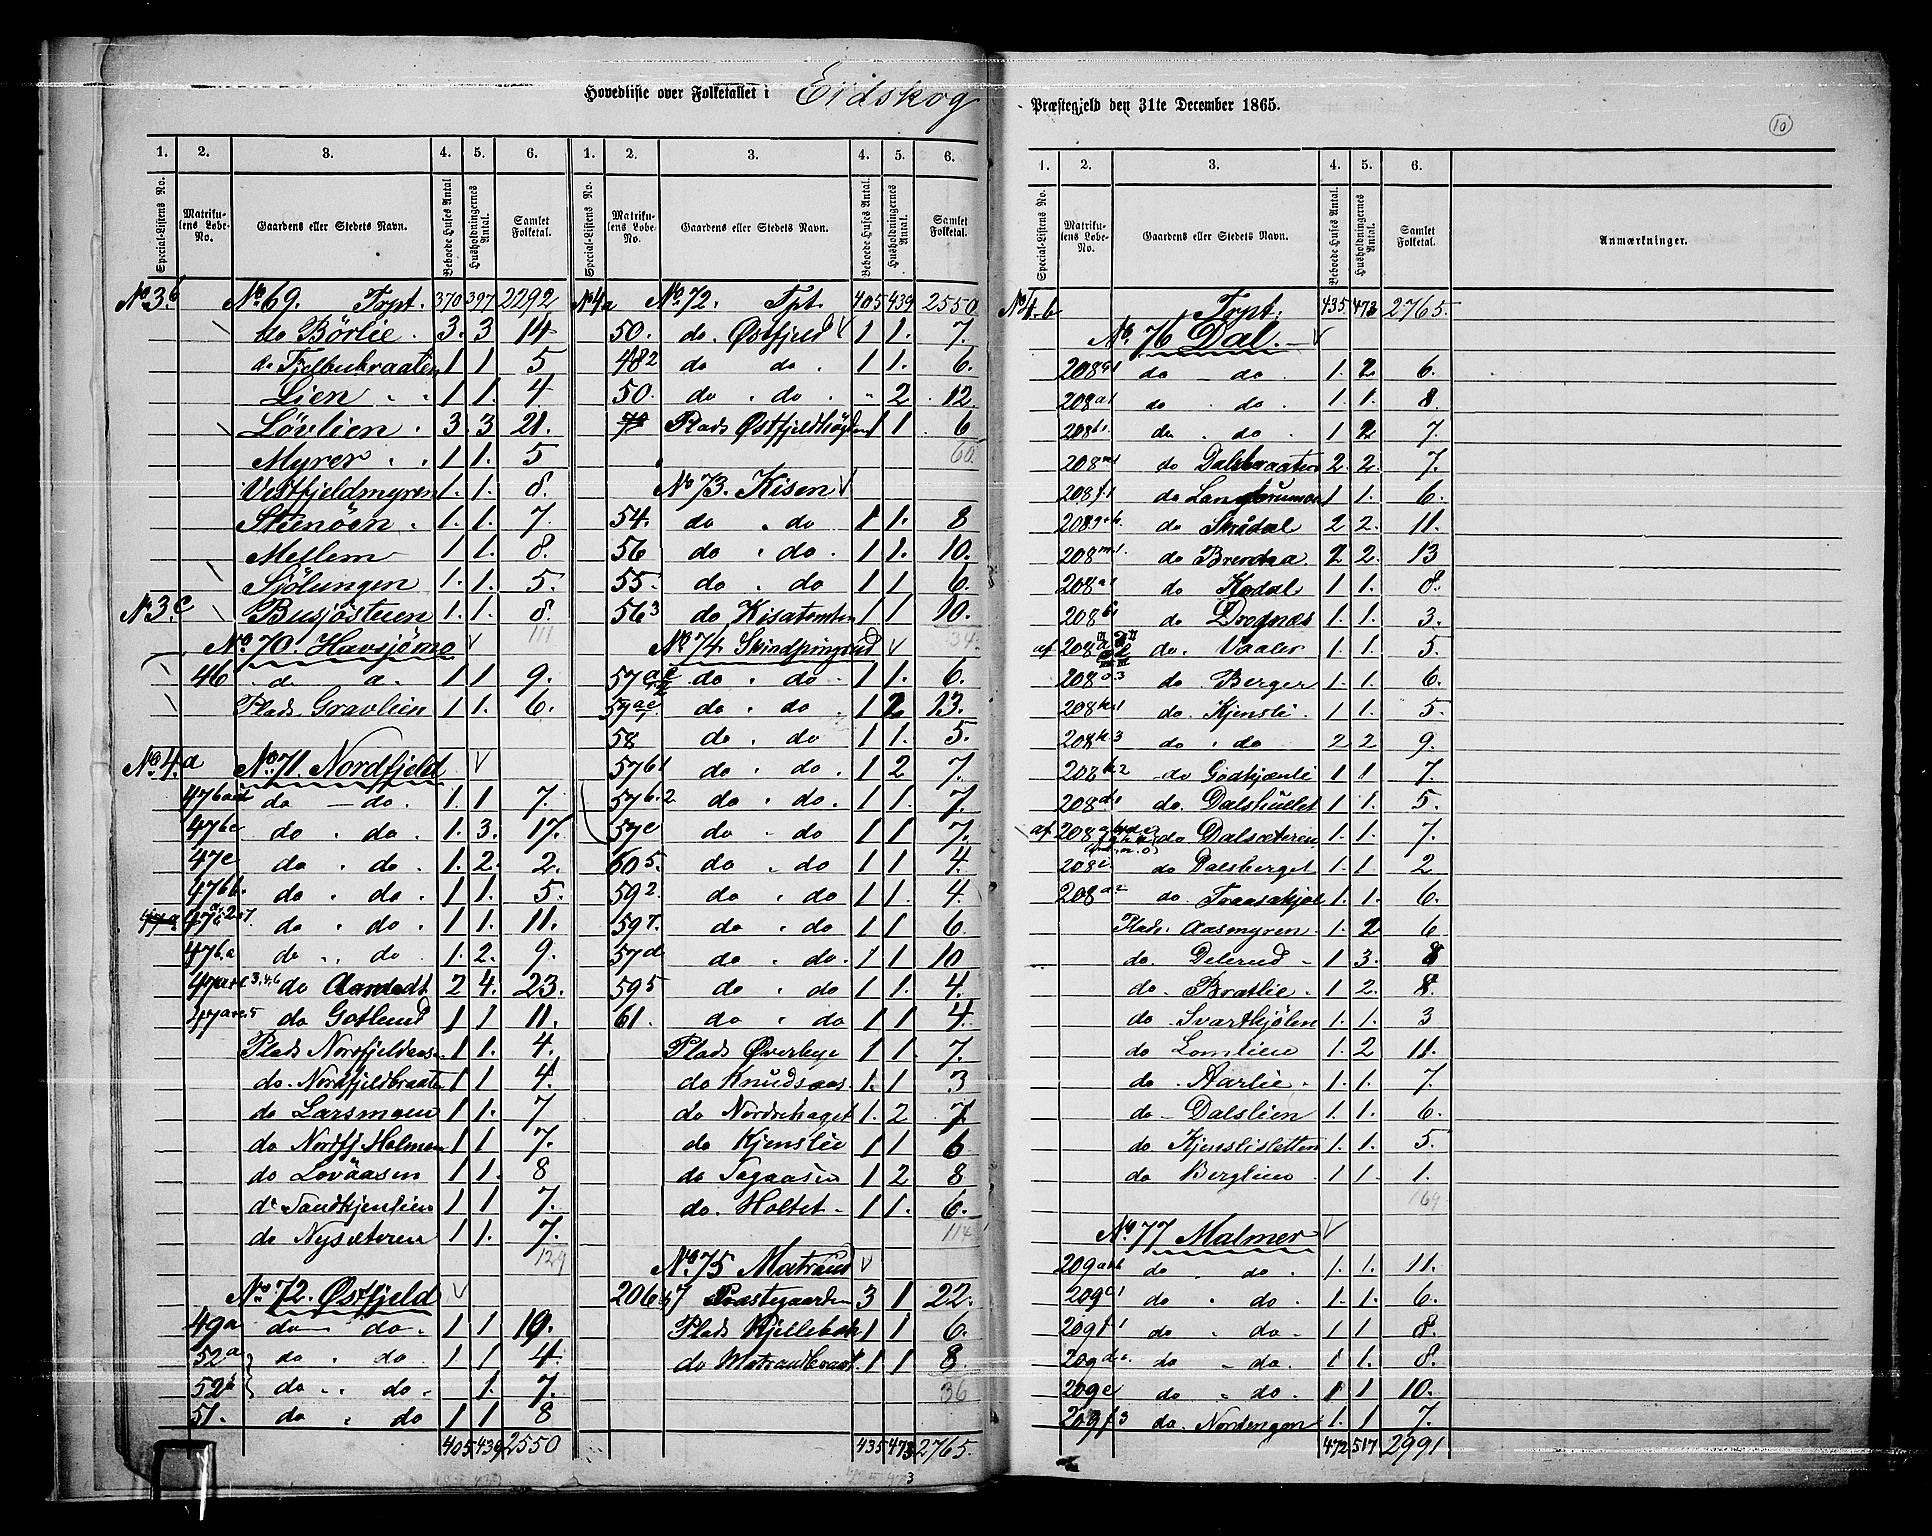 Hovedliste over Folketallet i Eidskog Præstegjeld den 31te December 1865.
10
1. 2. 3. 4. 5. 6.
Special-Listens No. Matrikulens Løbe-No. Gaardens eller Stedets Navn. Beboede Huses Antal Husholdningernes Antal. Samlet Folketal.
No 3.b No 69. Trpt. 370 397 2292
do Börlie. 3. 3 14
do Fjelbubraaten 1 1 5
Lien 1 1. 4
Lövlien 3. 3 21.
Myrer 1 1. 5
Vestfjeldmyren 1. 1. 8.
Stenöen 1. 1. 7.
Mellem 1 1. 8.
Sjölungen 1. 1. 5.
No 3.c Busjöstuen 1. 1. 8.
111
No 70. Havsjömo
46 d d. 1 1 9.
Plads Gravlien 1 1. 6.
No 4.a No 71. Nordfjeld
do do. 1. 1 7.
47bc do do. 1. 3. 17.
47e do do. 1. 2. 2.
47bb. do do. 1 1. 5.
do do. 1 1. 11.
47b.a do do 1. 2. 9.
do Aamodt 2 4. 23.
do Gotlund 1 1 11.
Plads Nordfjeldaasen 1 1. 4.
do. Nordfjeldbraaten 1 1 4.
do Larsmoen 1 1. 7
do Nordfj Holmen 1 1 7.
do Lovaasen 1 1. 8
do Sandkjenlien 1 1 7.
do Nysæteren 1 1. 7.
129
No 72. Østfjeld
49a do do. 1 1 10.
52a do do. 1 1 4.
52b do do. 1. 7.
51. do do 1 1 8
405 439 2550
1. 2. 3. 4. 5. 6.
Special-Listens No. Matrikulens Løbe-No. Gaardens eller Stedets Navn. Beboede Huses Antal Husholdningernes Antal. Samlet Folketal.
No 4a No 72. Tpt. 405 439 2550
50. do. Østfjeld 1 1. 7.
482 do do. 1 1. 6.
50. do do. " 2 12.
Plads Østfjeldhögden 1 1 6
60
No 73. Kisen
54. do do 1 1. 8
56 do do. 1 1. 10.
55. do do 1 1 6.
563 do Kisatomten 1 1 10.
34.
No 74. Skindpungrud
do do 1 1. 6.
do do. 1 2 13.
58 do do 1 1. 5.
57b1 do do. 1 2 7.
57b.2 do do. 1 1. 7.
57c do do 1 1 7.
605. do do 1 1 4.
592. do do 1 1. 4.
597. do do 1 1 6
57d do do. 1 1 10
595 do do 1 1. 4.
61. do do 1 1 4.
Plads Øverbye 1 1. 7.
do Knudsaas. 1. 1 3
do Nordrehaget 1. 2 7
do Kjenslie 1 1 6
do Togaasen 1 2 8
do. Holtet 1 1. 6.
114
No 75 Matrand
206 Præstegaarden 3 1 22.
Plads Kjellebæk 1 1 6.
do Matrandbraat. 1 1 8.
36
435 473 2765.
1. 2. 3. 4. 5. 6.
Special-Listens No. Matrikulens Løbe-No. Gaardens eller Stedets Navn. Beboede Huses Antal. Husholdningernes Antal. Samlet Folketal. Anmærkninger.
No 4.b Trpt. 435. 473 2765.
No 76 Dal.
208g1 do do. 1. 2 6.
208a1 do do. 1. 1. 8.
do do. 1 2 7.
208m1 do Dalsbraaten 2. 2. 7.
208f.1 do Langbrunnen 1 1. 6.
do Skådal 2 2. 11.
208m.1. do Brendaa 2 2. 13
208a1 do Kodal 1 1. 8.
208b1 do Drognæs 1. 1. 3.
af 208 do. Vaaler 1. 1. 5.
do Berger 1. 1. 6.
208k1 do Kjensli. 1 1. 5.
208k.3 do do 2 2 9.
208k2 do Godkjænli 1 1 7.
208d.1 do. Dalshullet 1 1. 5.
af 208 do Dalsæteren 1. 1. 7.
208i. do Dalsberget 1. 1. 2
208a2 do. Traasækjöl 1. 1. 6.
Plads Aasmyren 1. 2 6
do. Delerud 1 3. 8
do. Bratlie 1 2. 8.
do. Svartkjölen 1. 1. 3
do Lomlien 1. 2 11.
do. Aarlie 1. 1. 7.
do Dalslien 1. 1. 6.
do. Kjenslisletten 1. 1. 5.
do Berglien 1. 1. 1.
169
No 77 Malmer
209a+b do do. 1. 1. 11.
209c1 do do. 1. 1. 6.
209f1 do do. 1 1 8.
209d1. do do. 1 1. 8.
209e do do. 1 1 10.
209f3 do. Nordengen 1. 1 7.
472 517 2991